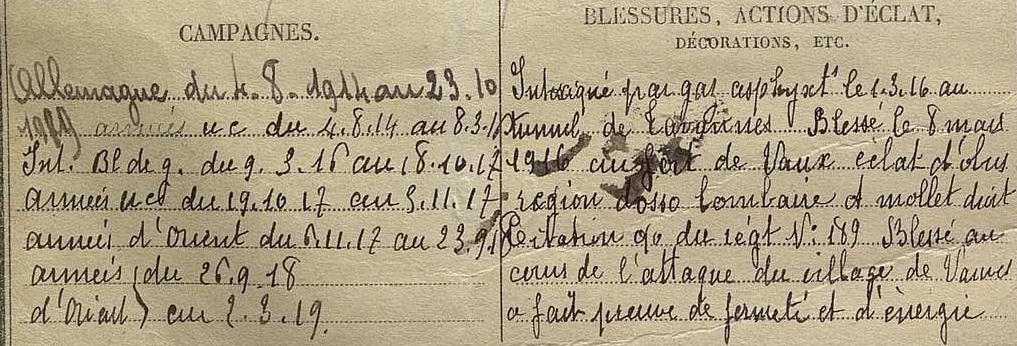 CAMPAGNES.
Allemagne du 4.8.1914 au 23.10
1919 armées n e du 4.8.14 au 8.3.16
Int. Bl de g. du 9.3.16 au 18.10.17
armées n e du 19.10 17 au 5.11.17
armées d'Orient du 6.11.17 au 23.9.18
armées du 26.9.18
d'Orient au 2.3.19.
BLESSURES, ACTIONS D'ÉCLAT,
DÉCORATIONS, ETC.
Intoxiqué par gas asphyxts le 1.3.16 au
tunnel de Tavannes Blessé le 8 mars
1916 au fort de Vaux éclat d'obus
région dosso lombaire et mollet droit
Citation go du régt No 189 Blessé au
cours de l'attaque du village de Vaux
a fait preuve de fermeté et d'énergie